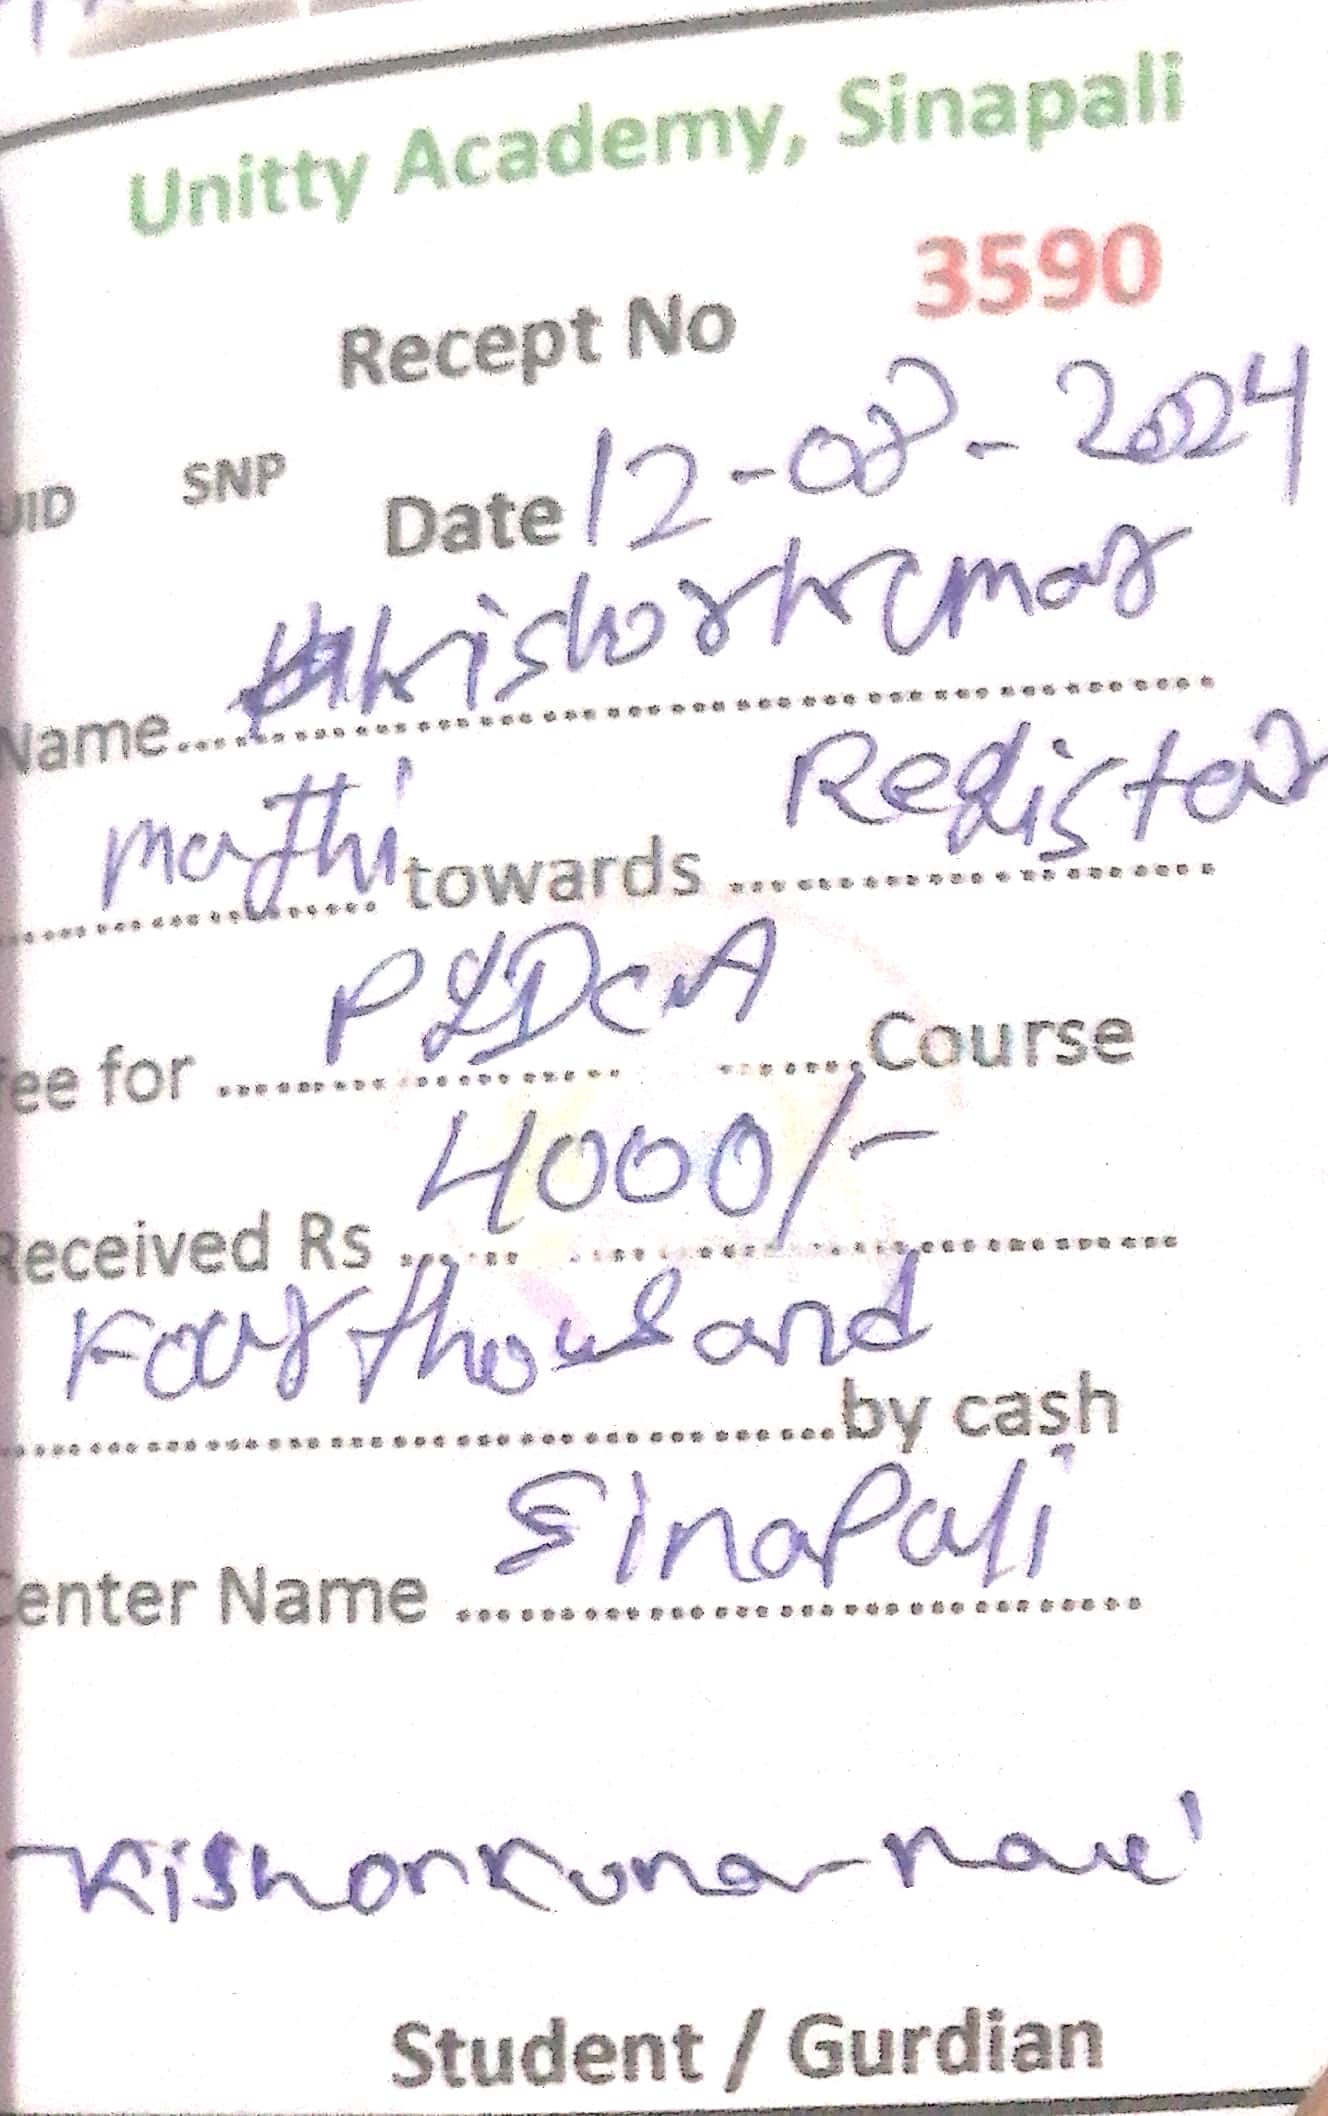 Unitty Academy, Sinapali
3590
Recept No
UID SNP Date 12-08-2024
Name kishor kumar
majhi towards Registar
ee for PGDCA Course
Received Rs 4000/-
Four thousand
by cash
enter Name Sinapali
Kishor Kumar
Student / Gurdian